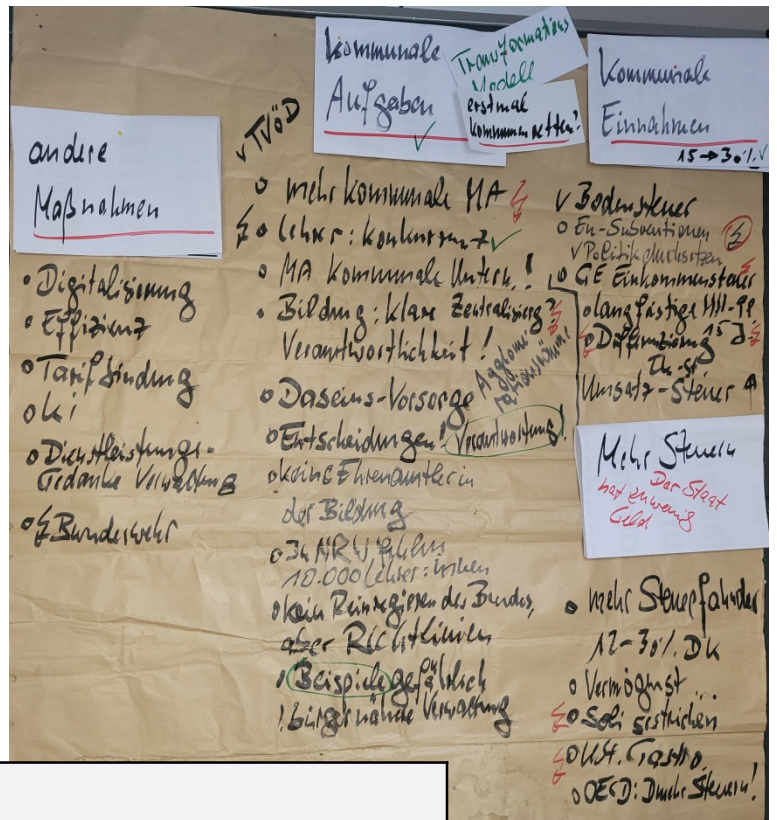 andere
Maßnahmen
• Digitalisierung
• Effizienz
• Tarifbindung
o KI
o Dienstleistungs-
Gedanke Verwaltung
o Bundeswehr
Kommunale
Aufgaben
Transformations
Modell
erstmal
Kommunen retten!
v TVöD
o mehr kommunale MA
o Lehrer: Konkurrenz
o MA Kommunale Untern.!
o Bildung: klare Zentralisierg?
Verantwortlichkeit!
o Daseins-Vorsorge
o Entscheidungen! Verantwortung!
o keine Ehrenamtler in
der Bildung
o In NRW fehlen
10.000 Lehrer:
o kein Reinregieren des Bundes,
aber Richtlinien
! Beispiele gefährlich
! bürgernähere Verwaltung
Kommunale
Einnahmen
15 → 30%
v Bodensteuer
o En-Subventionen
v Politik durchsetzen
o GE Einkommensteuer
o langfristige
o 15 J
Umsatz-Steuer
Mehr Steuern
Der Staat
hat zu wenig
Geld
o mehr Steuerfahnder
12-30%. DK
o Vermögenst...
o Soli gestrichen
o USt. Gastro.
o OECD: D mehr Steuern!